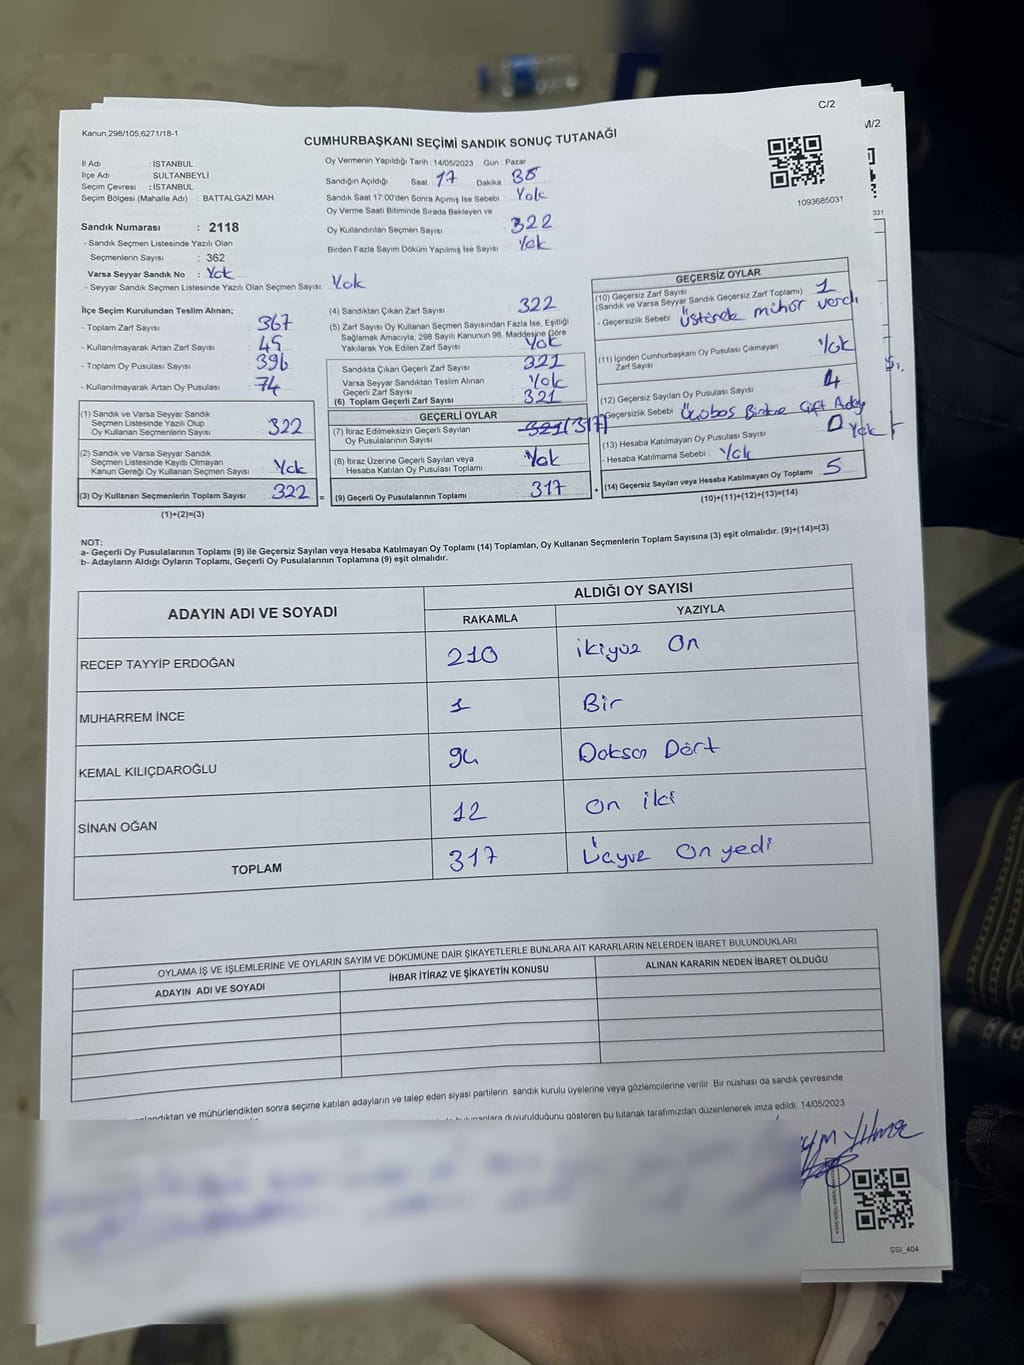 C/2
M/2
Kanun,298/105,6271/18-1
CUMHURBAŞKANI SEÇİMİ SANDIK SONUÇ TUTANAĞI
1093685031
331
İl Adı : İSTANBUL
İlçe Adı : SULTANBEYLİ
Seçim Çevresi : İSTANBUL
Seçim Bölgesi (Mahalle Adı) : BATTALGAZİ MAH.
Sandık Numarası : 2118
- Sandık Seçmen Listesinde Yazılı Olan
Seçmenlerin Sayısı : 362
Varsa Seyyar Sandık No : Yok
- Seyyar Sandık Seçmen Listesinde Yazılı Olan Seçmen Sayısı: Yok
Oy Vermenin Yapıldığı Tarih : 14/05/2023 Gün : Pazar
Sandığın Açıldığı Saat 17 Dakika
Sandık Saat 17:00'den Sonra Açımış İse Sebebi Yok
Oy Verme Saati Bitiminde Sırada Bekleyen ve
Oy Kullandırılan Seçmen Sayısı 322
Birden Fazla Sayım Döküm Yapılmış İse Sayısı : Yok
İlçe Seçim Kurulundan Teslim Alınan;
- Toplam Zarf Sayısı 367
- Kullanılmayarak Artan Zarf Sayısı 45
- Toplam Oy Pusulası Sayısı 396
- Kullanılmayarak Artan Oy Pusulası 74
(1) Sandık ve Varsa Seyyar Sandık
Seçmen Listesinde Yazılı Olup
Oy Kullanan Seçmenlerin Sayısı 322
(2) Sandık ve Varsa Seyyar Sandık
Seçmen Listesinde Kayıtlı Olmayan
Kanun Gereği Oy Kullanan Seçmen Sayısı Yok
(3) Oy Kullanan Seçmenlerin Toplam Sayısı 322 =
(1)+(2)=(3)
(4) Sandıktan Çıkan Zarf Sayısı 322
(5) Zarf Sayısı Oy Kullanan Seçmen Sayısından Fazla İse, Eşitliği
Sağlamak Amacıyla; 298 Sayılı Kanunun 98. Maddesine Göre
Yakılarak Yok Edilen Zarf Sayısı Yok
Sandıkta Çıkan Geçerli Zarf Sayısı 321
Varsa Seyyar Sandıktan Teslim Alınan
Geçerli Zarf Sayısı Yok
(6) Toplam Geçerli Zarf Sayısı 321
GEÇERLİ OYLAR
(7) İtiraz Edilmeksizin Geçerli Sayılan
Oy Pusulalarının Sayısı 321 (317)
(8) İtiraz Üzerine Geçerli Sayılan veya
Hesaba Katılan Oy Pusulası Toplamı Yok
(9) Geçerli Oy Pusulalarının Toplamı 317 +
GEÇERSİZ OYLAR
(10) Geçersiz Zarf Sayısı
(Sandık ve Varsa Seyyar Sandık Geçersiz Zarf Toplamı) : 1
- Geçersizlik Sebebi : Üstünde mühür verdı
(11) İçinden Cumhurbaşkanı Oy Pusulası Çıkmayan
Zarf Sayısı Yok
(12) Geçersiz Sayılan Oy Pusulası Sayısı 4
Geçersizlik Sebebi Çift Aday
(13) Hesaba Katılmayan Oy Pusulası Sayısı 0 Yok
- Hesaba Katılmama Sebebi : Yok
(14) Geçersiz Sayılan veya Hesaba Katılmayan Oy Toplamı 5
(10)+(11)+(12)+(13)=(14)
NOT:
a- Geçerli Oy Pusulalarının Toplamı (9) ile Geçersiz Sayılan veya Hesaba Katılmayan Oy Toplamı (14) Toplamları, Oy Kullanan Seçmenlerin Toplam Sayısına (3) eşit olmalıdır. (9)+(14)=(3)
b- Adayların Aldığı Oyların Toplamı, Geçerli Oy Pusulalarının Toplamına (9) eşit olmalıdır.
ADAYIN ADI VE SOYADI
ALDIĞI OY SAYISI
RAKAMLA YAZIYLA
RECEP TAYYİP ERDOĞAN 210 ikiyüz On
MUHARREM İNCE 1 Bir
KEMAL KILIÇDAROĞLU 94 Doksan Dört
SİNAN OĞAN 12 on iki
TOPLAM 317 Üçyüz On yedi
OYLAMA İŞ VE İŞLEMLERİNE VE OYLARIN SAYIM VE DÖKÜMÜNE DAİR ŞİKAYETLERLE BUNLARA AİT KARARLARIN NELERDEN İBARET BULUNDUKLARI
ADAYIN ADI VE SOYADI İHBAR İTİRAZ VE ŞİKAYETİN KONUSU ALINAN KARARIN NEDEN İBARET OLDUĞU
mühürlendikten sonra seçime katılan adayların ve talep eden siyasi partilerin sandık kurulu üyelerine veya gözlemcilerine verilir. Bir nüshası da sandık çevresinde
duyurulduğunu gösteren bu tutanak tarafımızdan düzenlenerek imza edildi. 14/05/2023
SSI_404